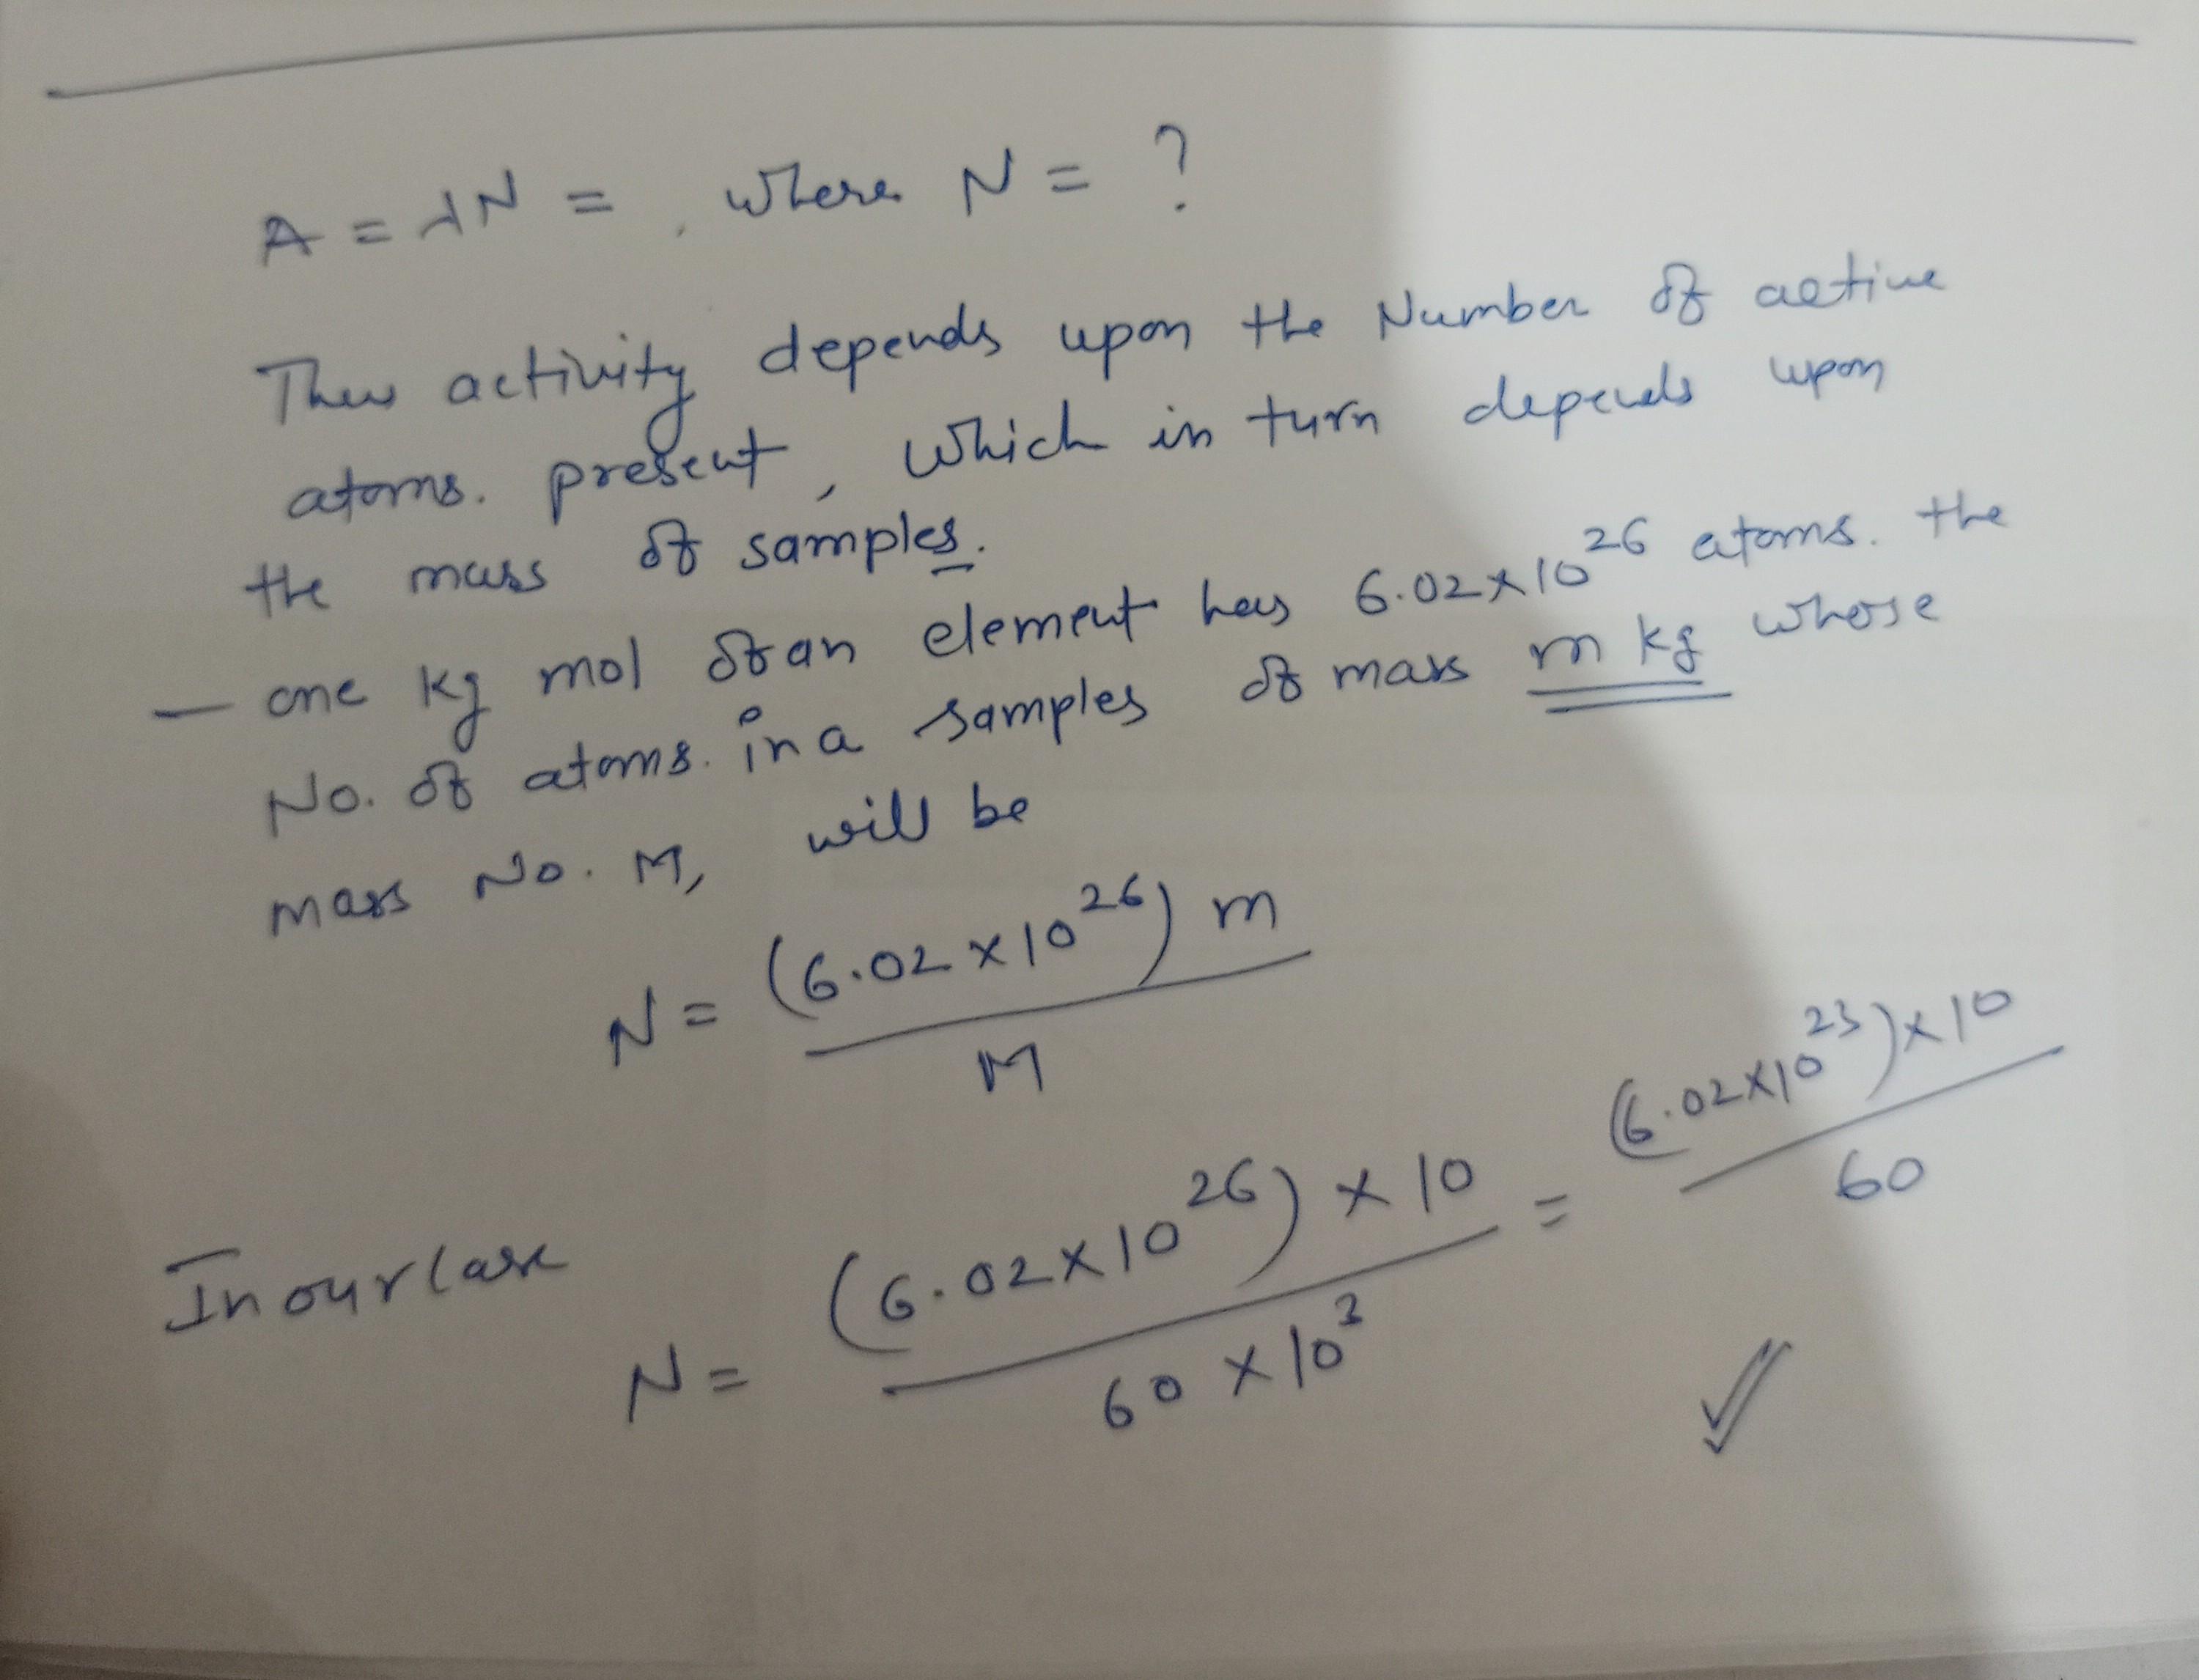 A = λN = , where N = ?
Thus activity depends upon the Number of active
atoms. present, which in turn depends upon
the mass of samples.
— one kg mol of an element has 6.02×10²⁶ atoms. the
No. of atoms. in a samples of mass m kg whose
mass No. M, will be
N = (6.02×10²⁶) m / M
In our case N = (6.02×10²⁶) × 10 / 60 × 10³ = (6.02×10²³)×10 / 60